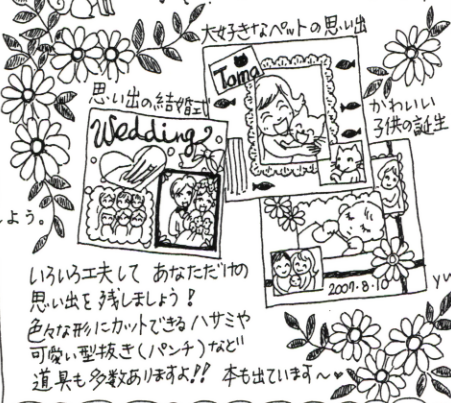 大好きなペットの思い出
Toma
思い出の結婚式
Wedding
かわいい
子供の誕生
よう。
2007.8.10
yu
いろいろ工夫して あなただけの
思い出を残しましょう!
色々な形にカットできるハサミや
可愛い型抜き(パンチ)など
道具も多数ありますよ!! 本も出ています〜♥